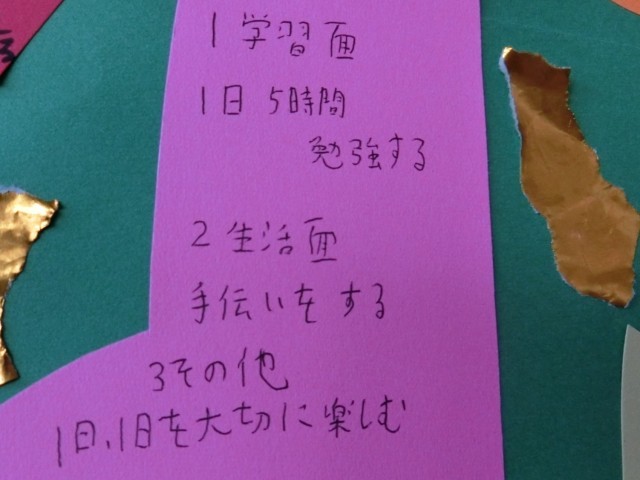 1 学習面
1日 5時間
勉強する
2 生活面
手伝いをする
3その他
1日、1日を大切に楽しむ